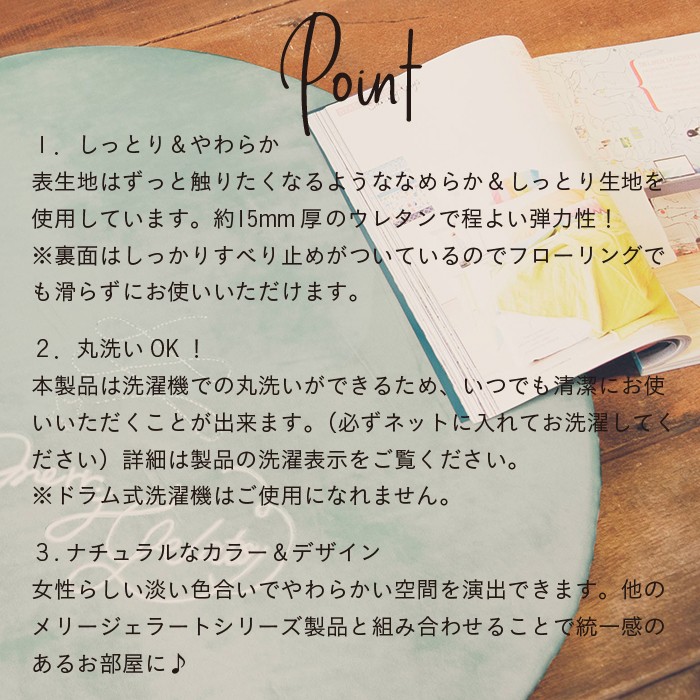 Point
1．しっとり＆やわらか
表生地はずっと触りたくなるようななめらか＆しっとり生地を
使用しています。約15mm厚のウレタンで程よい弾力性！
※裏面はしっかりすべり止めがついているのでフローリングで
も滑らずにお使いいただけます。
２．丸洗いOK！
本製品は洗濯機での丸洗いができるため、いつでも清潔にお使
いいただくことが出来ます。（必ずネットに入れてお洗濯してく
ださい）詳細は製品の洗濯表示をご覧ください。
※ドラム式洗濯機はご使用になれません。
３.ナチュラルなカラー＆デザイン
女性らしい淡い色合いでやわらかい空間を演出できます。他の
メリージェラートシリーズ製品と組み合わせることで統一感の
あるお部屋に♪